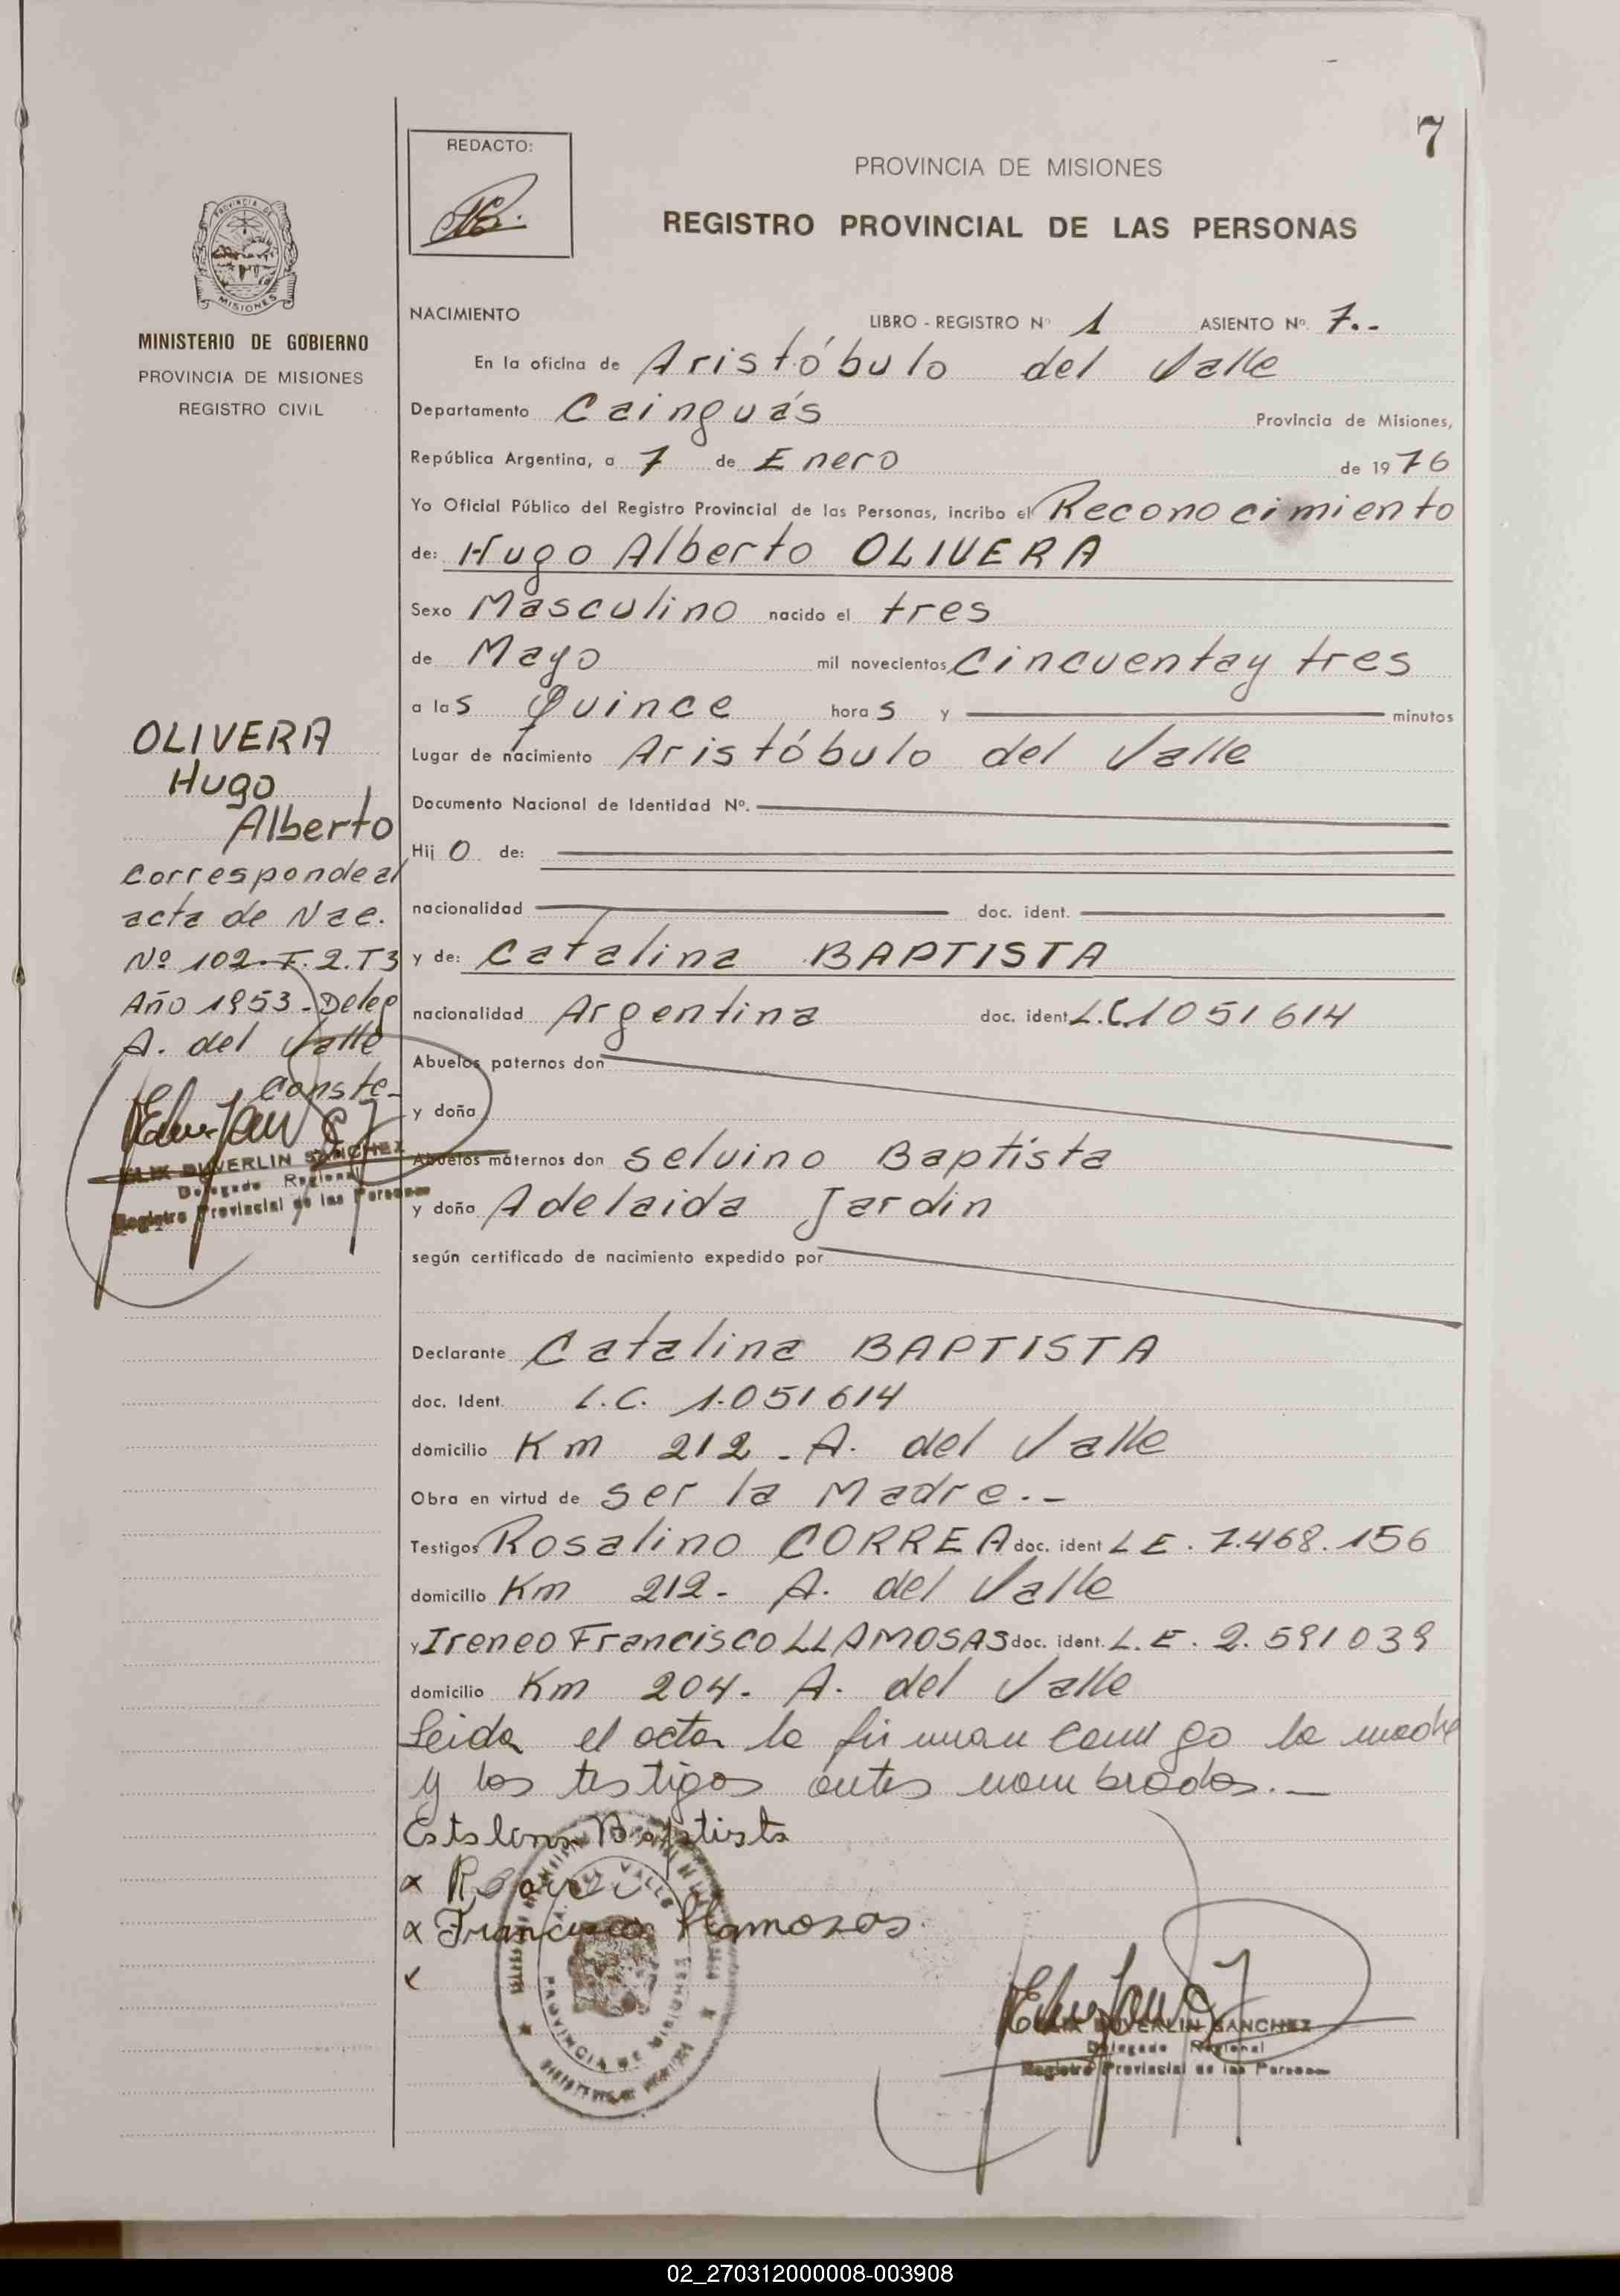 7
REDACTO:
PROVINCIA DE MISIONES
REGISTRO PROVINCIAL DE LAS PERSONAS
PROVINCIA DE
MISIONES
MINISTERIO DE GOBIERNO
PROVINCIA DE MISIONES
REGISTRO CIVIL
NACIMIENTO LIBRO - REGISTRO Nº 1 ASIENTO Nº. 7.-
En la oficina de Aristóbulo del Valle
Departamento Cainguás Provincia de Misiones,
República Argentina, a 7 de Enero de 1976
Yo Oficial Público del Registro Provincial de las Personas, incribo el Reconocimiento
de: Hugo Alberto OLIVERA
Sexo Masculino nacido el tres
de Mayo mil novecientos Cincuenta y tres
a las Quince horas y minutos
Lugar de nacimiento Aristóbulo del Valle
Documento Nacional de Identidad Nº.
Hijo de:
nacionalidad doc. ident.
y de: Catalina BAPTISTA
nacionalidad Argentina doc. ident L.C. 1051614
Abuelos paternos don
y doña
Abuelos maternos don Selvino Baptista
y doña Adelaida Jardin
según certificado de nacimiento expedido por
Declarante Catalina BAPTISTA
doc. Ident. L.C. 1.051614
domicilio Km 212 - A. del Valle
Obra en virtud de ser la Madre.-
Testigos Rosalino CORREA doc. ident LE. 7.468.156
domicilio Km 212- A. del Valle
y Ireneo Francisco LLAMOSAS doc. ident. L.E. 2.591039
domicilio Km 204- A. del Valle
Leida el acta la firman conmigo la madre
y los testigos antes nombrados.-
Catalina Baptista
x
x Francisco Llamosas.
x
OLIVERA
Hugo
Alberto
Corresponde al
acta de Nac.
Nº 102-F.2.T3
Año 1953-Deleg
A. del Valle
Conste-
DUVERLIN SANCHEZ
Delegado Regional
Registro Provincial de las Personas
DEL VALLE
PROVINCIA DE MISIONES
DUVERLIN SANCHEZ
Delegado Regional
Registro Provincial de las Personas
02_270312000008-003908